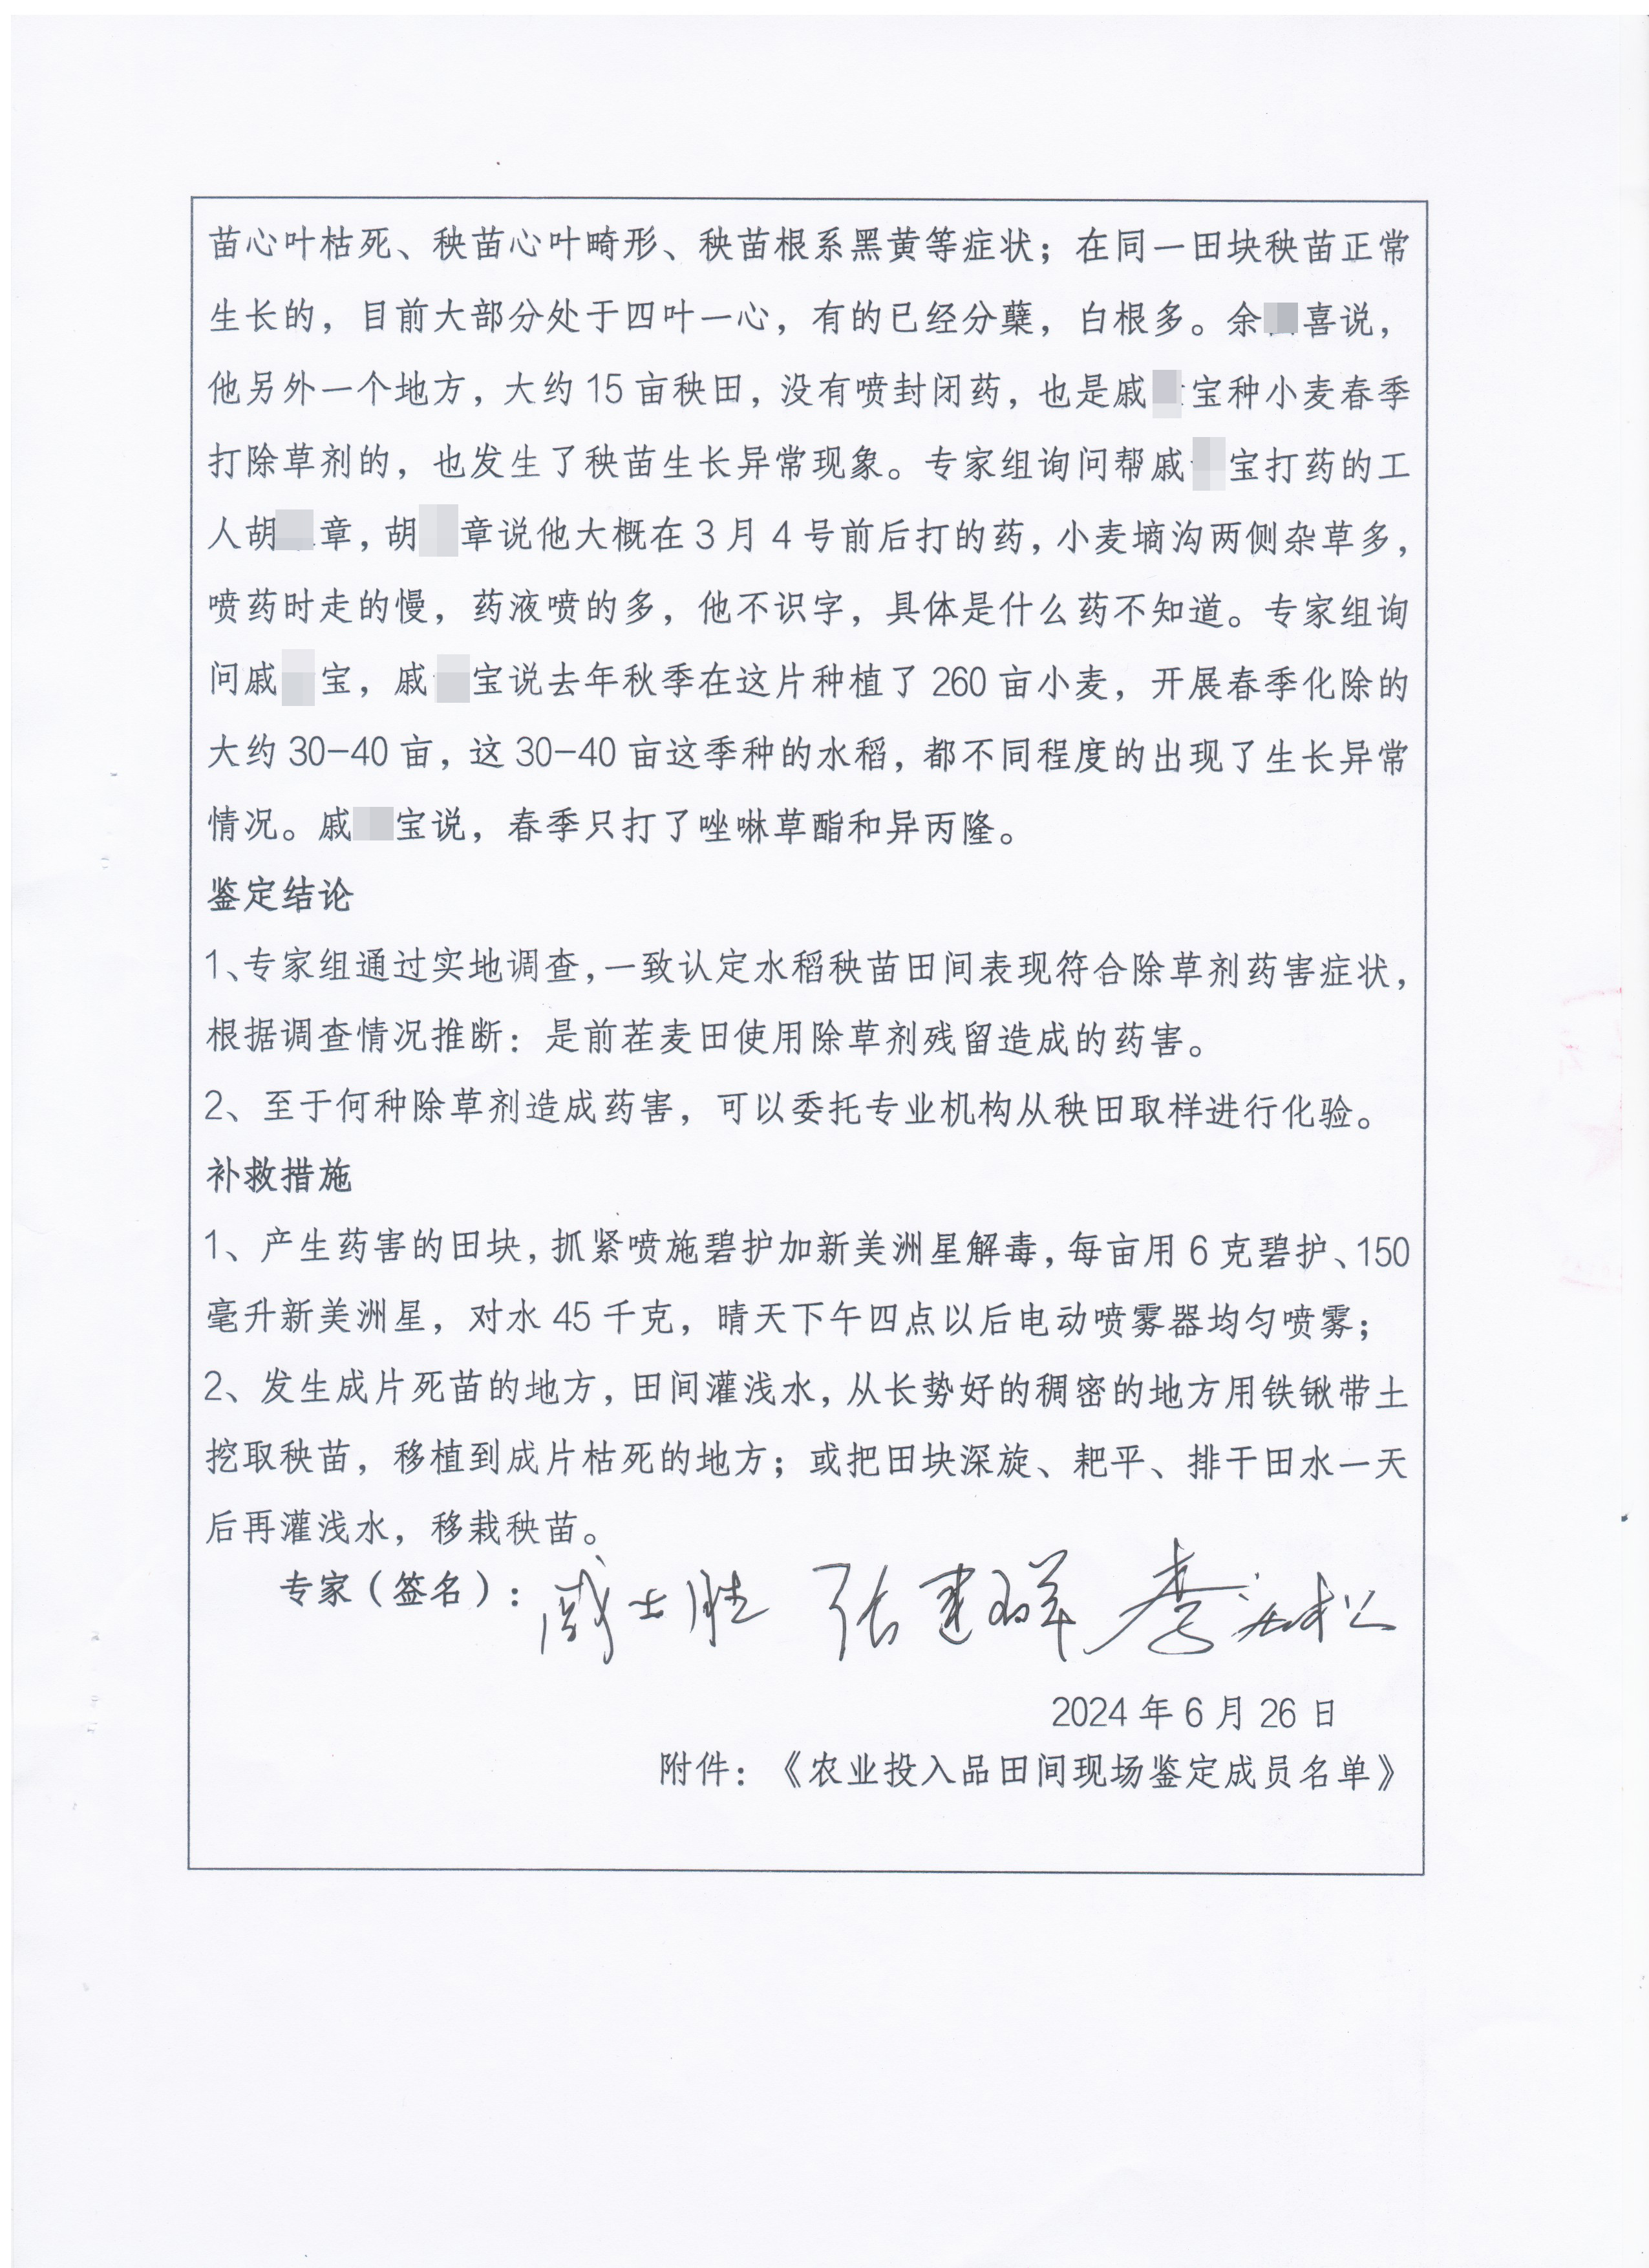 苗心叶枯死、秧苗心叶畸形、秧苗根系黑黄等症状；在同一田块秧苗正常
生长的，目前大部分处于四叶一心，有的已经分蘖，白根多。余喜说，
他另外一个地方，大约15亩秧田，没有喷封闭药，也是戚宝种小麦春季
打除草剂的，也发生了秧苗生长异常现象。专家组询问帮戚宝打药的工
人胡章，胡章说他大概在3月4号前后打的药，小麦墒沟两侧杂草多，
喷药时走的慢，药液喷的多，他不识字，具体是什么药不知道。专家组询
问戚宝，戚宝说去年秋季在这片种植了260亩小麦，开展春季化除的
大约30-40亩，这30-40亩这季种的水稻，都不同程度的出现了生长异常
情况。戚宝说，春季只打了唑啉草酯和异丙隆。
鉴定结论
1、专家组通过实地调查，一致认定水稻秧苗田间表现符合除草剂药害症状，
根据调查情况推断：是前茬麦田使用除草剂残留造成的药害。
2、至于何种除草剂造成药害，可以委托专业机构从秧田取样进行化验。
补救措施
1、产生药害的田块，抓紧喷施碧护加新美洲星解毒，每亩用6克碧护、150
毫升新美洲星，对水45千克，晴天下午四点以后电动喷雾器均匀喷雾；
2、发生成片死苗的地方，田间灌浅水，从长势好的稠密的地方用铁锹带土
挖取秧苗，移植到成片枯死的地方；或把田块深旋、耙平、排干田水一天
后再灌浅水，移栽秧苗。
专家（签名）：戚士胜 张建群 李松
2024年6月26日
附件：《农业投入品田间现场鉴定成员名单》